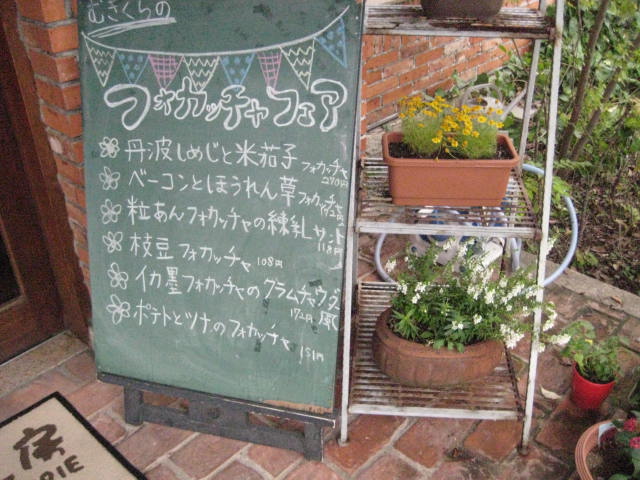 むぎくらの
フォカッチャフェア
丹波しめじと米茄子フォカッチャ 270円
ベーコンとほうれん草フォカッチャ 172円
粒あんフォカッチャの練乳サンド 118円
枝豆フォカッチャ 108円
イカ墨フォカッチャのクラムチャウダー風 172円
ポテトとツナのフォカッチャ 151円
房
DIE